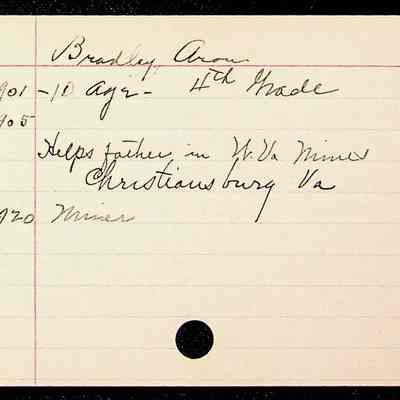 Bradley, Aron
901 - 10 Age - 4th Grade
905
Helps father in W. Va Mines
Christiansburg Va
920 Miner